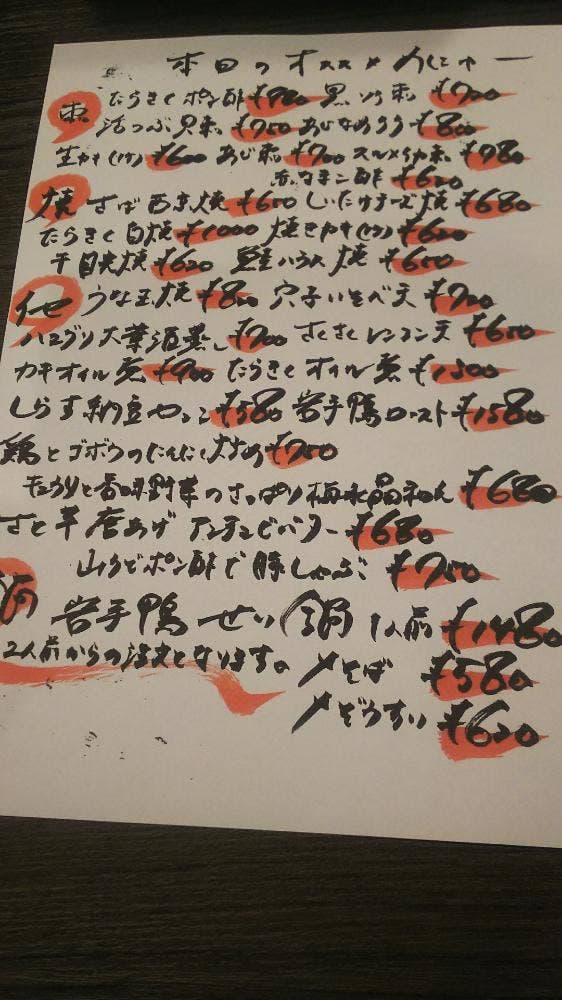 本日のオススメめにゅー
刺 たらきくポン酢 ¥780 黒ソイ刺 ¥700
活つぶ貝刺 ¥750 あじなめろう ¥800
生かき(1ヶ) ¥600 あじ刺 ¥700 スルメイカ刺 ¥780
ポン酢 ¥620
焼 さば西京焼 ¥650 しいたけチーズ焼 ¥680
たらきく白焼 ¥1000 焼きかき(1ヶ) ¥620
干目光焼 ¥620 鮭ハラス焼 ¥650
他 うな玉焼 ¥800 穴子いそべ天 ¥700
ハマグリ大葉酒蒸し ¥700 さくさくレンコン天 ¥650
カキオイル煮 ¥900 たらきくオイル煮 ¥1300
しらす納豆やっこ ¥580 岩手鴨ロースト ¥1580
鶏とゴボウのにんにく炒め ¥750
と香味野菜のさっぱり梅水晶和え ¥680
さと芋唐あげアンチョビバター ¥680
山うどポン酢で豚しゃぶ ¥750
鍋 岩手鴨せり鍋 1人前 ¥1480
2人前からの注文となります。 〆そば ¥580
〆ぞうすい ¥620